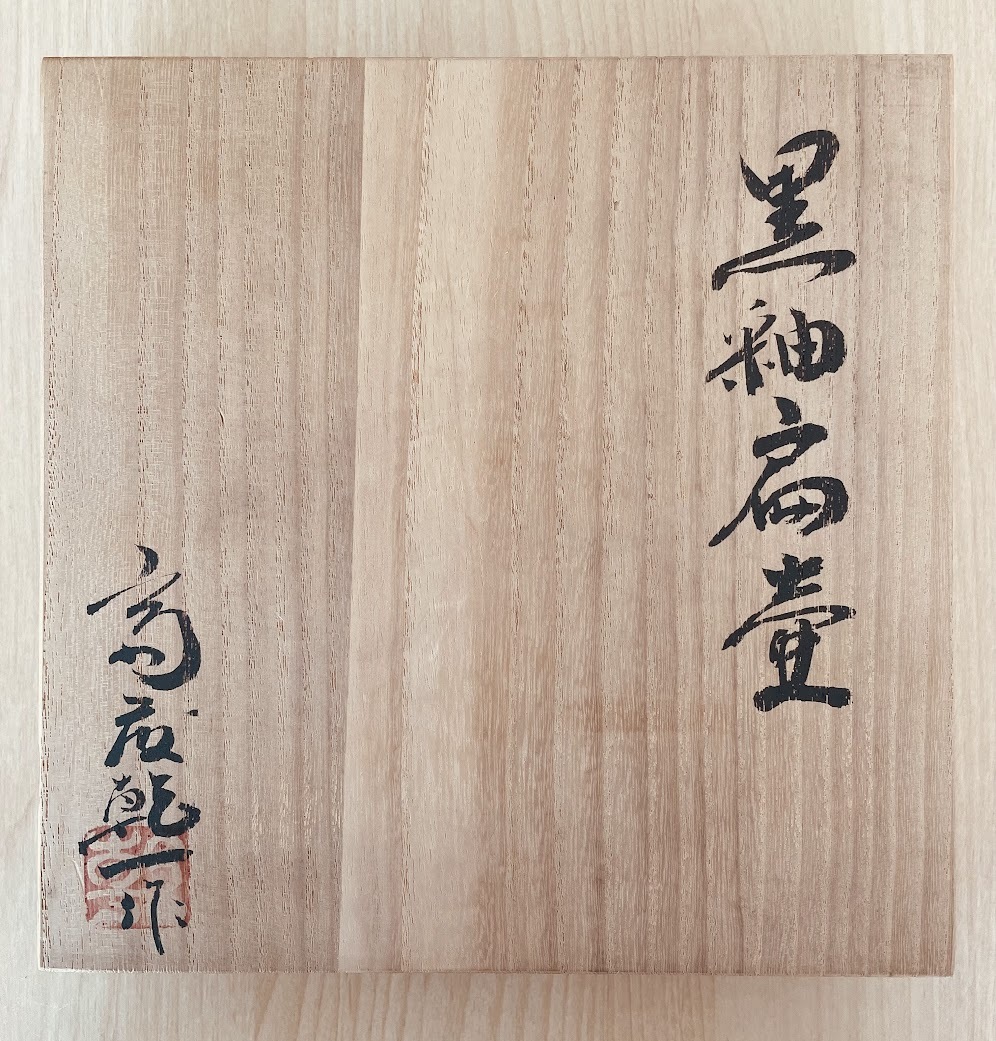 黒釉扁壷
高 乾一作